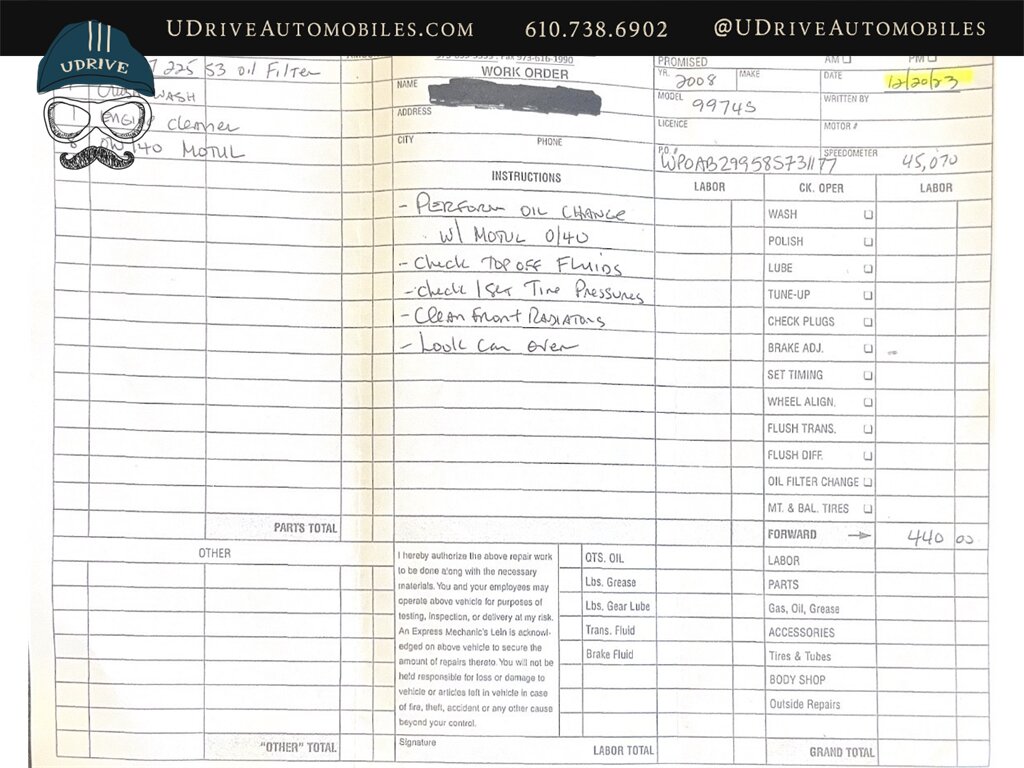 UDRIVEAUTOMOBILES.COM 610.738.6902 @UDRIVEAUTOMOBILES
UDRIVE
225 53 oil Filter
WASH
ENGINE cleaner
0W/40 MOTUL
PARTS TOTAL
OTHER
"OTHER" TOTAL
WORK ORDER
NAME
ADDRESS
CITY PHONE
INSTRUCTIONS
- PERFORM OIL CHANGE
W/ MOTUL 0/40
- Check TOP OFF Fluids
- check / Set Tire Pressures
- Clean Front RADIATORS
- Look Car Over
I hereby authorize the above repair work
to be done along with the necessary
materials. You and your employees may
operate above vehicle for purposes of
testing, inspection, or delivery at my risk.
An Express Mechanic's Lein is acknowl-
edged on above vehicle to secure the
amount of repairs thereto. You will not be
held responsible for loss or damage to
vehicle or articles left in vehicle in case
of fire, theft, accident or any other cause
beyond your control.
Signature
QTS. OIL
Lbs. Grease
Lbs. Gear Lube
Trans. Fluid
Brake Fluid
LABOR TOTAL
PROMISED AM PM
YR. 2008 MAKE DATE 12/20/23
MODEL 9974S WRITTEN BY
LICENCE MOTOR #
P.O. # WP0AB29958S731177 SPEEDOMETER 45,070
LABOR CK. OPER LABOR
WASH
POLISH
LUBE
TUNE-UP
CHECK PLUGS
BRAKE ADJ.
SET TIMING
WHEEL ALIGN.
FLUSH TRANS.
FLUSH DIFF.
OIL FILTER CHANGE
MT. & BAL. TIRES
FORWARD 440 00
LABOR
PARTS
Gas, Oil, Grease
ACCESSORIES
Tires & Tubes
BODY SHOP
Outside Repairs
GRAND TOTAL